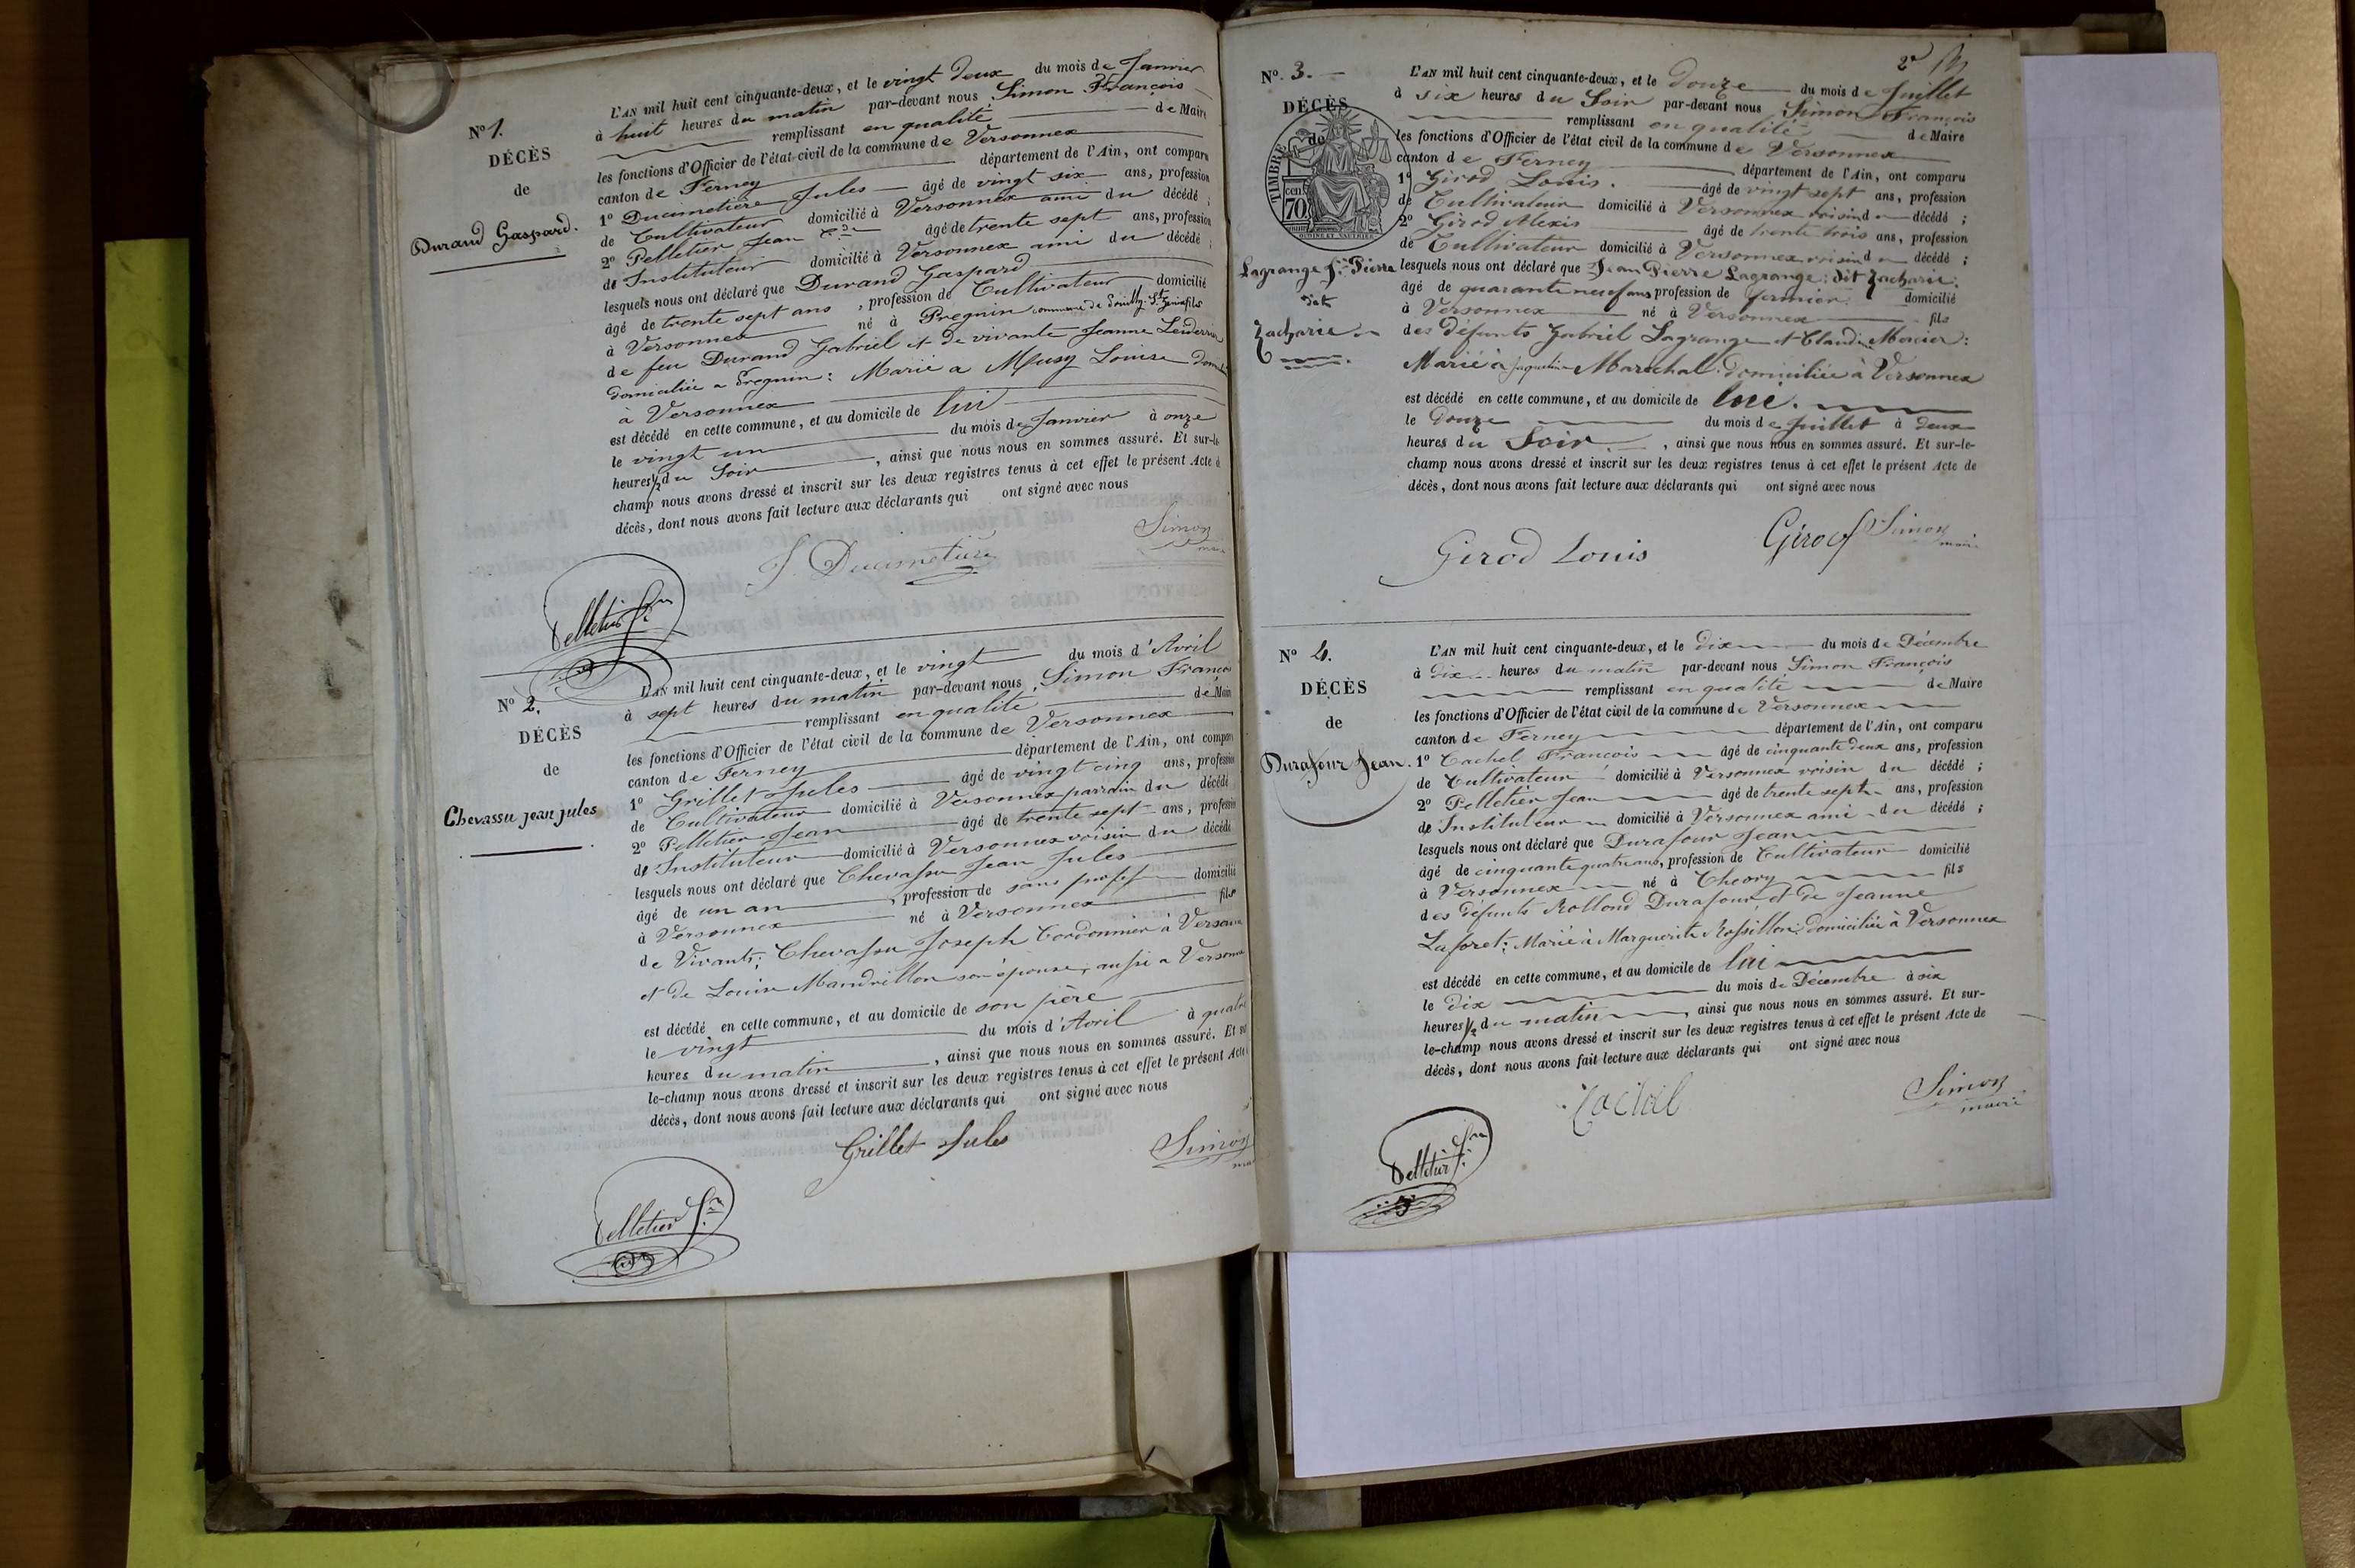 N° 1.
DÉCÈS
de
Durand Gaspard.
L'AN mil huit cent cinquante-deux, et le vingt deux du mois de Janvier
à huit heures du matin par-devant nous Simon François
remplissant en qualité de Maire
les fonctions d'Officier de l'état civil de la commune de Versonnex
canton de Ferney département de l'Ain, ont comparu
1° Ducimetière Jules âgé de vingt six ans, profession
de Cultivateur domicilié à Versonnex ami du décédé ;
2° Pelletier Jean âgé de trente sept ans, profession
de Instituteur domicilié à Versonnex ami du décédé ;
lesquels nous ont déclaré que Durand Gaspard
âgé de trente sept ans, profession de Cultivateur domicilié
à Versonnex né à Pregnin commune de fils
de feu Durand Gabriel et de vivante Jeanne
domiciliée a Pregnin : Marié a Musy Louise
à Versonnex
est décédé en cette commune, et au domicile de lui
le vingt un du mois de Janvier à onze
heures ½ du Soir, ainsi que nous nous en sommes assuré. Et sur-le-
champ nous avons dressé et inscrit sur les deux registres tenus à cet effet le présent Acte d
décès, dont nous avons fait lecture aux déclarants qui ont signé avec nous
Simon
maire
J. Ducimetière
Pelletier Jn
N° 2.
DÉCÈS
de
Chevassu jean jules
L'AN mil huit cent cinquante-deux, et le vingt du mois d'Avril
à sept heures du matin par-devant nous, Simon François
remplissant en qualité de Maire
les fonctions d'Officier de l'état civil de la commune de Versonnex
canton de Ferney département de l'Ain, ont comparu
1° Grillet Jules âgé de vingt cinq ans, profession
de Cultivateur domicilié à Versonnex parrain du décédé
2° Pelletier Jean âgé de trente sept ans, profession
de Instituteur domicilié à Versonnex voisin du décédé
lesquels nous ont déclaré que Chevassu Jean Jules
âgé de un an, profession de sans profess domicilié
à Versonnex né à Versonnex fils
de Vivants ; Chevassu Joseph Cordonnier à Versonnex
et de Louise Mandrillon son épouse, aussi a Versonnex
est décédé en cette commune, et au domicile de son père
le vingt du mois d'Avril à quatre
heures du matin, ainsi que nous nous en sommes assuré. Et sur-
le-champ nous avons dressé et inscrit sur les deux registres tenus à cet effet le présent Acte
décès, dont nous avons fait lecture aux déclarants qui ont signé avec nous
Grillet Jules
Simon
Pelletier Jn
2e
N° 3.
DÉCÈS
de
TIMBRE
70 cen
Lagrange Jn Pierre
dit
Zacharie
L'AN mil huit cent cinquante-deux, et le douze du mois de Juillet
à six heures du Soir par-devant nous Simon François
remplissant en qualité de Maire
les fonctions d'Officier de l'état civil de la commune de Versonnex
canton de Ferney département de l'Ain, ont comparu
1° Girod Louis. âgé de vingt sept ans, profession
de Cultivateur domicilié à Versonnex voisin du décédé ;
2° Girod Alexis âgé de trente trois ans, profession
de Cultivateur domicilié à Versonnex voisin du décédé ;
lesquels nous ont déclaré que Jean Pierre Lagrange : dit Zacharie :
âgé de quarante neuf ans profession de fermier domicilié
à Versonnex né à Versonnex fils
des défunts Gabriel Lagrange et Claudine Mercier :
Marié à Jaqueline Maréchal. domiciliée à Versonnex
est décédé en cette commune, et au domicile de lui.
le douze du mois de Juillet à deux
heures du Soir, ainsi que nous nous en sommes assuré. Et sur-le-
champ nous avons dressé et inscrit sur les deux registres tenus à cet effet le présent Acte de
décès, dont nous avons fait lecture aux déclarants qui ont signé avec nous
Girod Louis
Girod
Simon
maire
N° 4.
DÉCÈS
de
Durafour Jean.
L'AN mil huit cent cinquante-deux, et le dix du mois de Décembre
à dix heures du matin par-devant nous Simon François
remplissant en qualité de Maire
les fonctions d'Officier de l'état civil de la commune de Versonnex
canton de Ferney département de l'Ain, ont comparu
1° Cachel François âgé de cinquante deux ans, profession
de Cultivateur domicilié à Versonnex voisin du décédé ;
2° Pelletier Jean âgé de trente sept ans, profession
de Instituteur domicilié à Versonnex ami du décédé ;
lesquels nous ont déclaré que Durafour Jean
âgé de cinquante quatre ans, profession de Cultivateur domicilié
à Versonnex né à Cheory fils
des défunts Rolland Durafour et de Jeanne
Laforet ; Marié à Marguerite Rossillon, domiciliée à Versonnex
est décédé en cette commune, et au domicile de lui
le dix du mois de Décembre à six
heures ½ du matin, ainsi que nous nous en sommes assuré. Et sur-
le-champ nous avons dressé et inscrit sur les deux registres tenus à cet effet le présent Acte de
décès, dont nous avons fait lecture aux déclarants qui ont signé avec nous
Simon
maire
Pelletier Jn